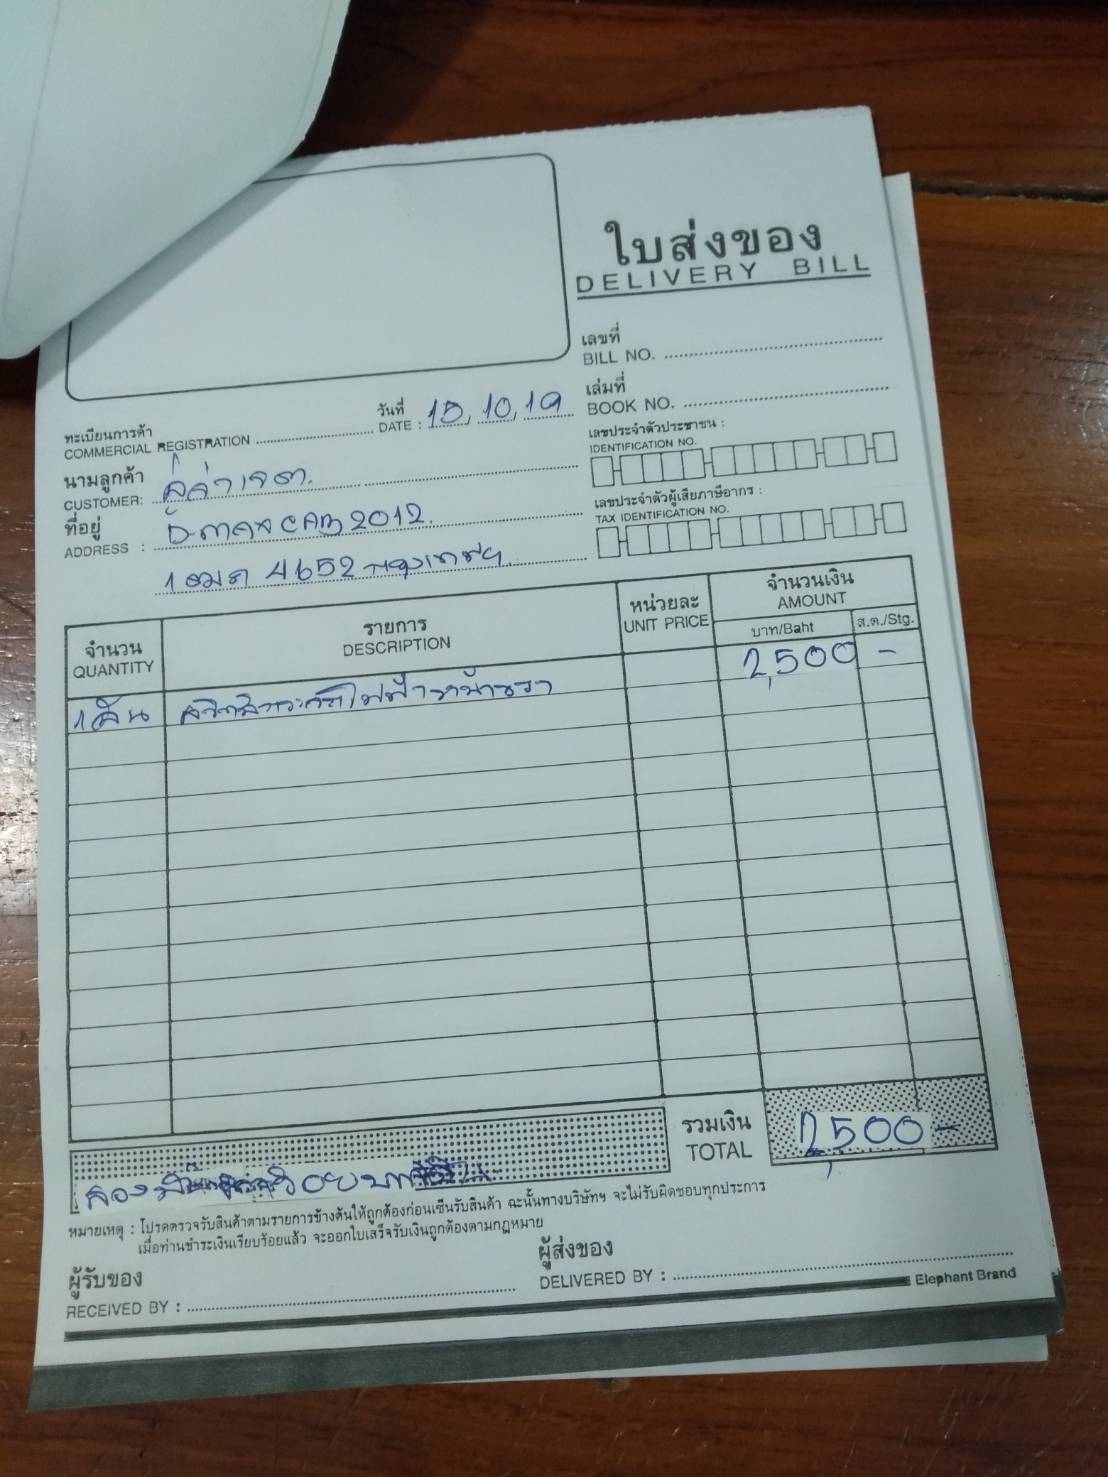 ใบส่งของ
DELIVERY BILL
เลขที่
BILL NO.
วันที่
DATE : 15, 10, 19
เล่มที่
BOOK NO.
ทะเบียนการค้า
COMMERCIAL REGISTRATION
เลขประจำตัวประชาชน :
IDENTIFICATION NO.
นามลูกค้า
CUSTOMER:
เลขประจำตัวผู้เสียภาษีอากร :
TAX IDENTIFICATION NO.
ที่อยู่
ADDRESS : D-MAX CAB 2012
1ฒศ 4652 กรุงเทพฯ
จำนวน
QUANTITY
รายการ
DESCRIPTION
หน่วยละ
UNIT PRICE
จำนวนเงิน
AMOUNT
บาท/Baht
ส.ต./Stg.
1 คัน สวิทช์กระจกไฟฟ้าหน้าขวา 2,500 -
รวมเงิน
TOTAL
2,500 -
สองพันห้าร้อยบาทถ้วน
หมายเหตุ : โปรดตรวจรับสินค้าตามรายการข้างต้นให้ถูกต้องก่อนเซ็นรับสินค้า ฉะนั้นทางบริษัทฯ จะไม่รับผิดชอบทุกประการ
เมื่อท่านชำระเงินเรียบร้อยแล้ว จะออกใบเสร็จรับเงินถูกต้องตามกฎหมาย
ผู้รับของ
RECEIVED BY :
ผู้ส่งของ
DELIVERED BY :
Elephant Brand